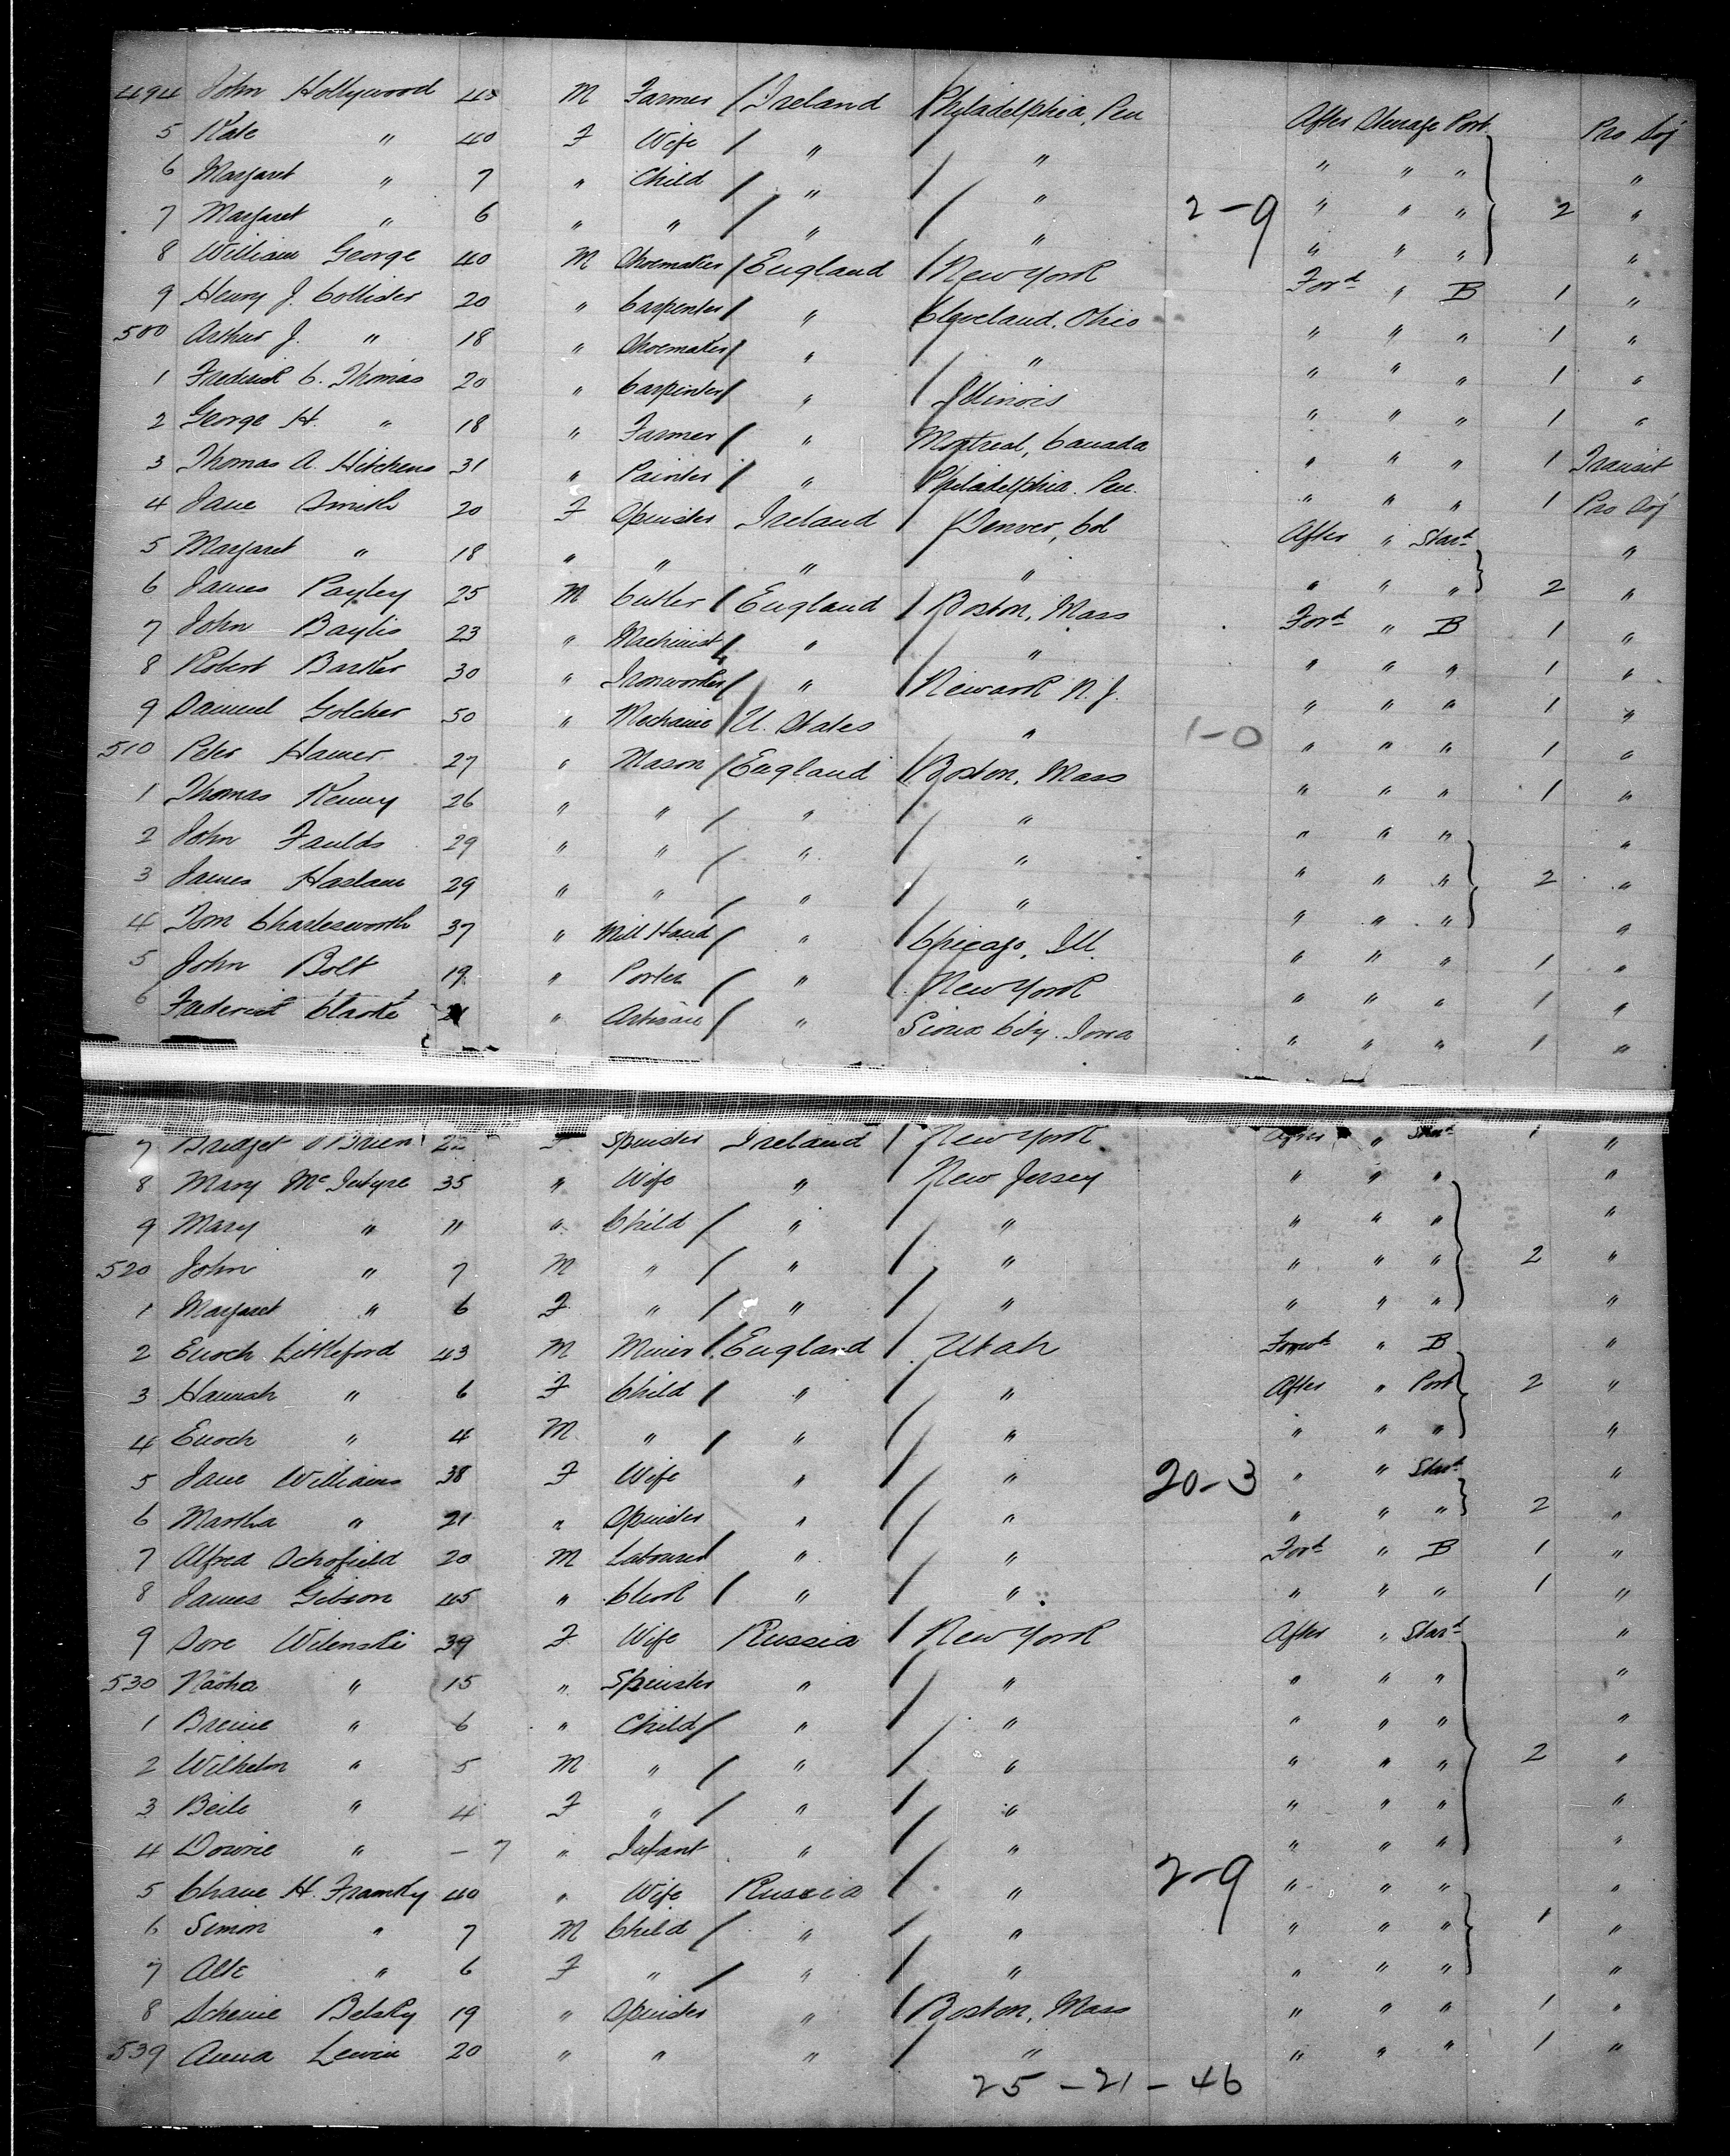 494 John Hollywood 45 M Farmer Ireland Philadelphia, Pen After Steerage Port Pro Soj
5 Kate " 40 F Wife " " " " " "
6 Margaret " 7 " Child " " " " " "
7 Margaret " 6 " " " " 2-9 " " " 2 "
8 William George 40 M Shoemaker England New York Ford " B 1 "
9 Henry J. Collider 20 " Carpenter " Cleveland, Ohio " " " 1 "
500 Arthur J. " 18 " Shoemaker " " " " " 1 "
1 Frederick C. Thomas 20 " Carpenter " Illinois " " " 1 "
2 George H. " 18 " Farmer " Montreal, Canada " " " 1 Transit
3 Thomas A. Hitchens 31 " Painter " Philadelphia. Pen. " " " 1 Pro Soj
4 Jane Smith 20 F Spinster Ireland Denver, Col After " Stard "
5 Margaret " 18 " " " " " " " 2 "
6 James Payley 25 M Cutler England Boston, Mass Ford " B 1 "
7 John Baylis 23 " Machinist " " " " " 1 "
8 Robert Barker 30 " Ironworker " Newark N.J. " " " 1 "
9 Samuel Golcher 50 " Mechanic U. States " 1-0 " " " 1 "
510 Peter Hamer 27 " Mason England Boston, Mass " " " 1 "
1 Thomas Kenny 26 " " " " " " " "
2 John Faulds 29 " " " " " " " 2 "
3 James Haslam 29 " " " " " " " "
4 Tom Charlesworth 37 " Mill Hand " Chicago, Ill. " " " 1 "
5 John Bolt 19 " Porter " New York " " " 1 "
6 Frederick Clarke 21 " Artisan " Sioux City. Iowa " " " 1 "
7 Bridget O'Brien F Spinster Ireland New York After " Stard 1 "
8 Mary McIntyre 35 " Wife " New Jersey " " " "
9 Mary " 11 " Child " " " " " "
520 John " 7 M " " " " " " 2 "
1 Margaret " 6 F " " " " " " "
2 Enoch Littleford 43 M Miner England Utah Forwd " B "
3 Hannah " 6 F Child " " After " Port 2 "
4 Enoch " 4 M " " " " " " "
5 Jane Williams 38 F Wife " " 20-3 " " Stard "
6 Martha " 21 " Spinster " " " " " 2 "
7 Alfred Schofield 20 M Labourer " " Ford " B 1 "
8 James Gibson 45 " Clerk " " " " " 1 "
9 Sore Wilenski 39 F Wife Russia New York After " Stard "
530 Näoha " 15 " Spinster " " " " " "
1 Breine " 6 " Child " " " " " "
2 Wilhelm " 5 M " " " " " " 2 "
3 Beile " 4 F " " " " " " "
4 Dowrie " - 7 " Infant " " " " " "
5 Chaie H. Framky 40 " Wife Russia " 2-9 " " " "
6 Simon " 7 M Child " " " " " 1 "
7 Alte " 6 F " " " " " " "
8 Scheine Belsky 19 " Spinster " Boston, Mass " " " 1 "
539 Anna Lewin 20 " " " " " " " 1 "
25 - 21 - 46